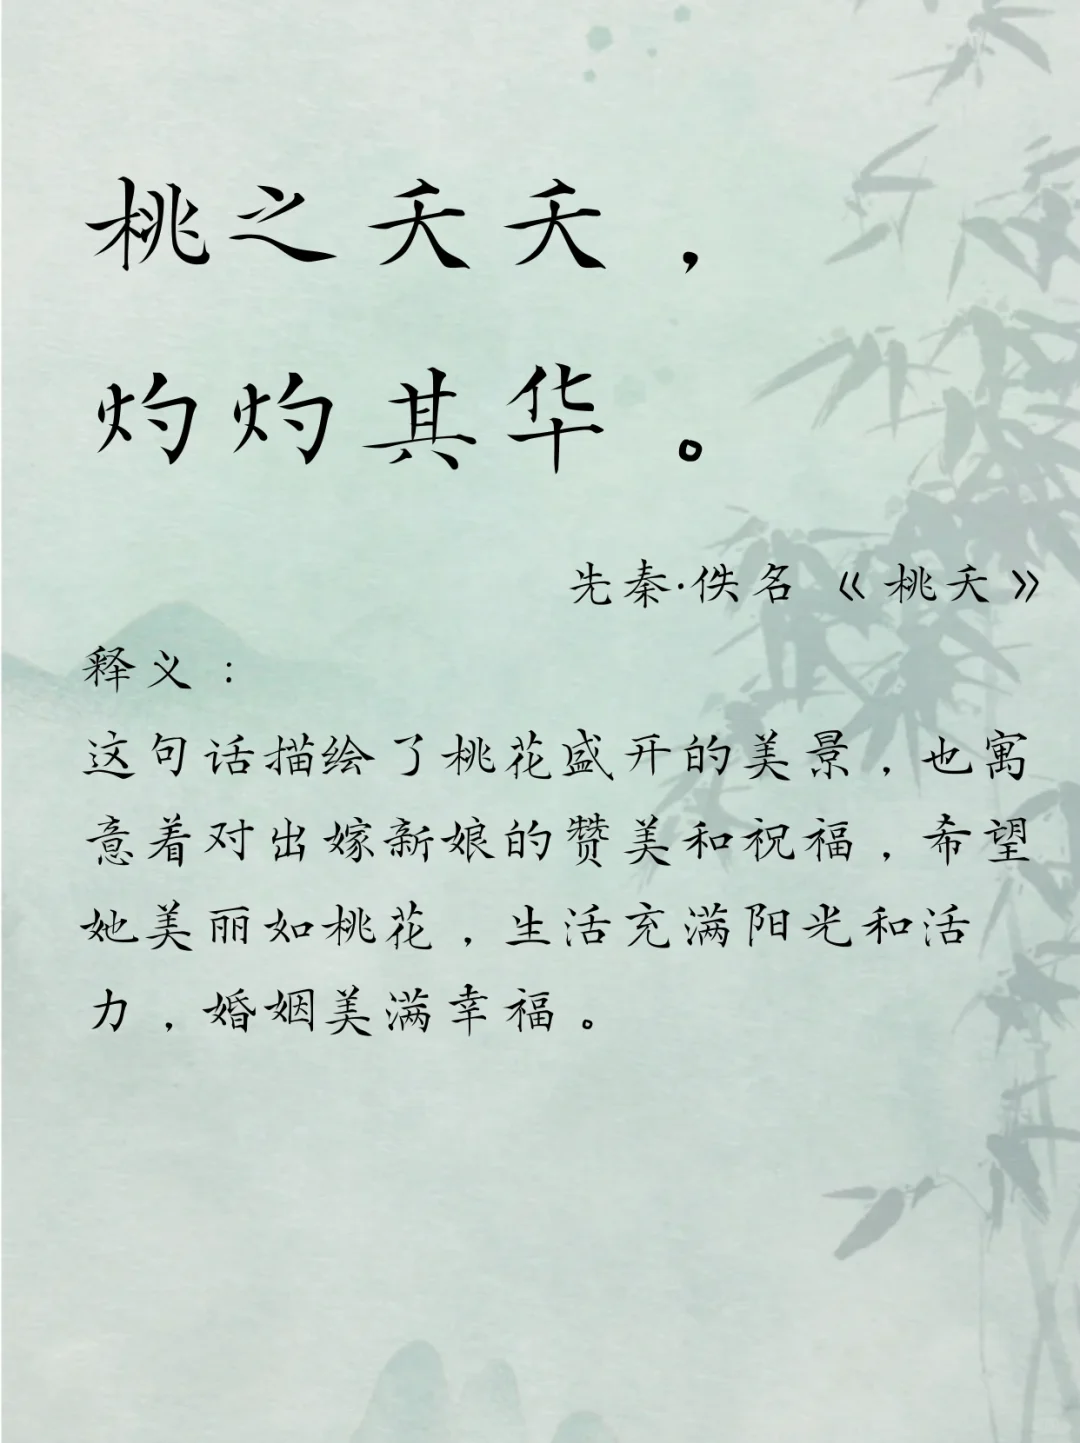 桃之夭夭，
灼灼其华。
先秦·佚名《桃夭》
释义：
这句话描绘了桃花盛开的美景，也寓
意着对出嫁新娘的赞美和祝福，希望
她美丽如桃花，生活充满阳光和活
力，婚姻美满幸福。